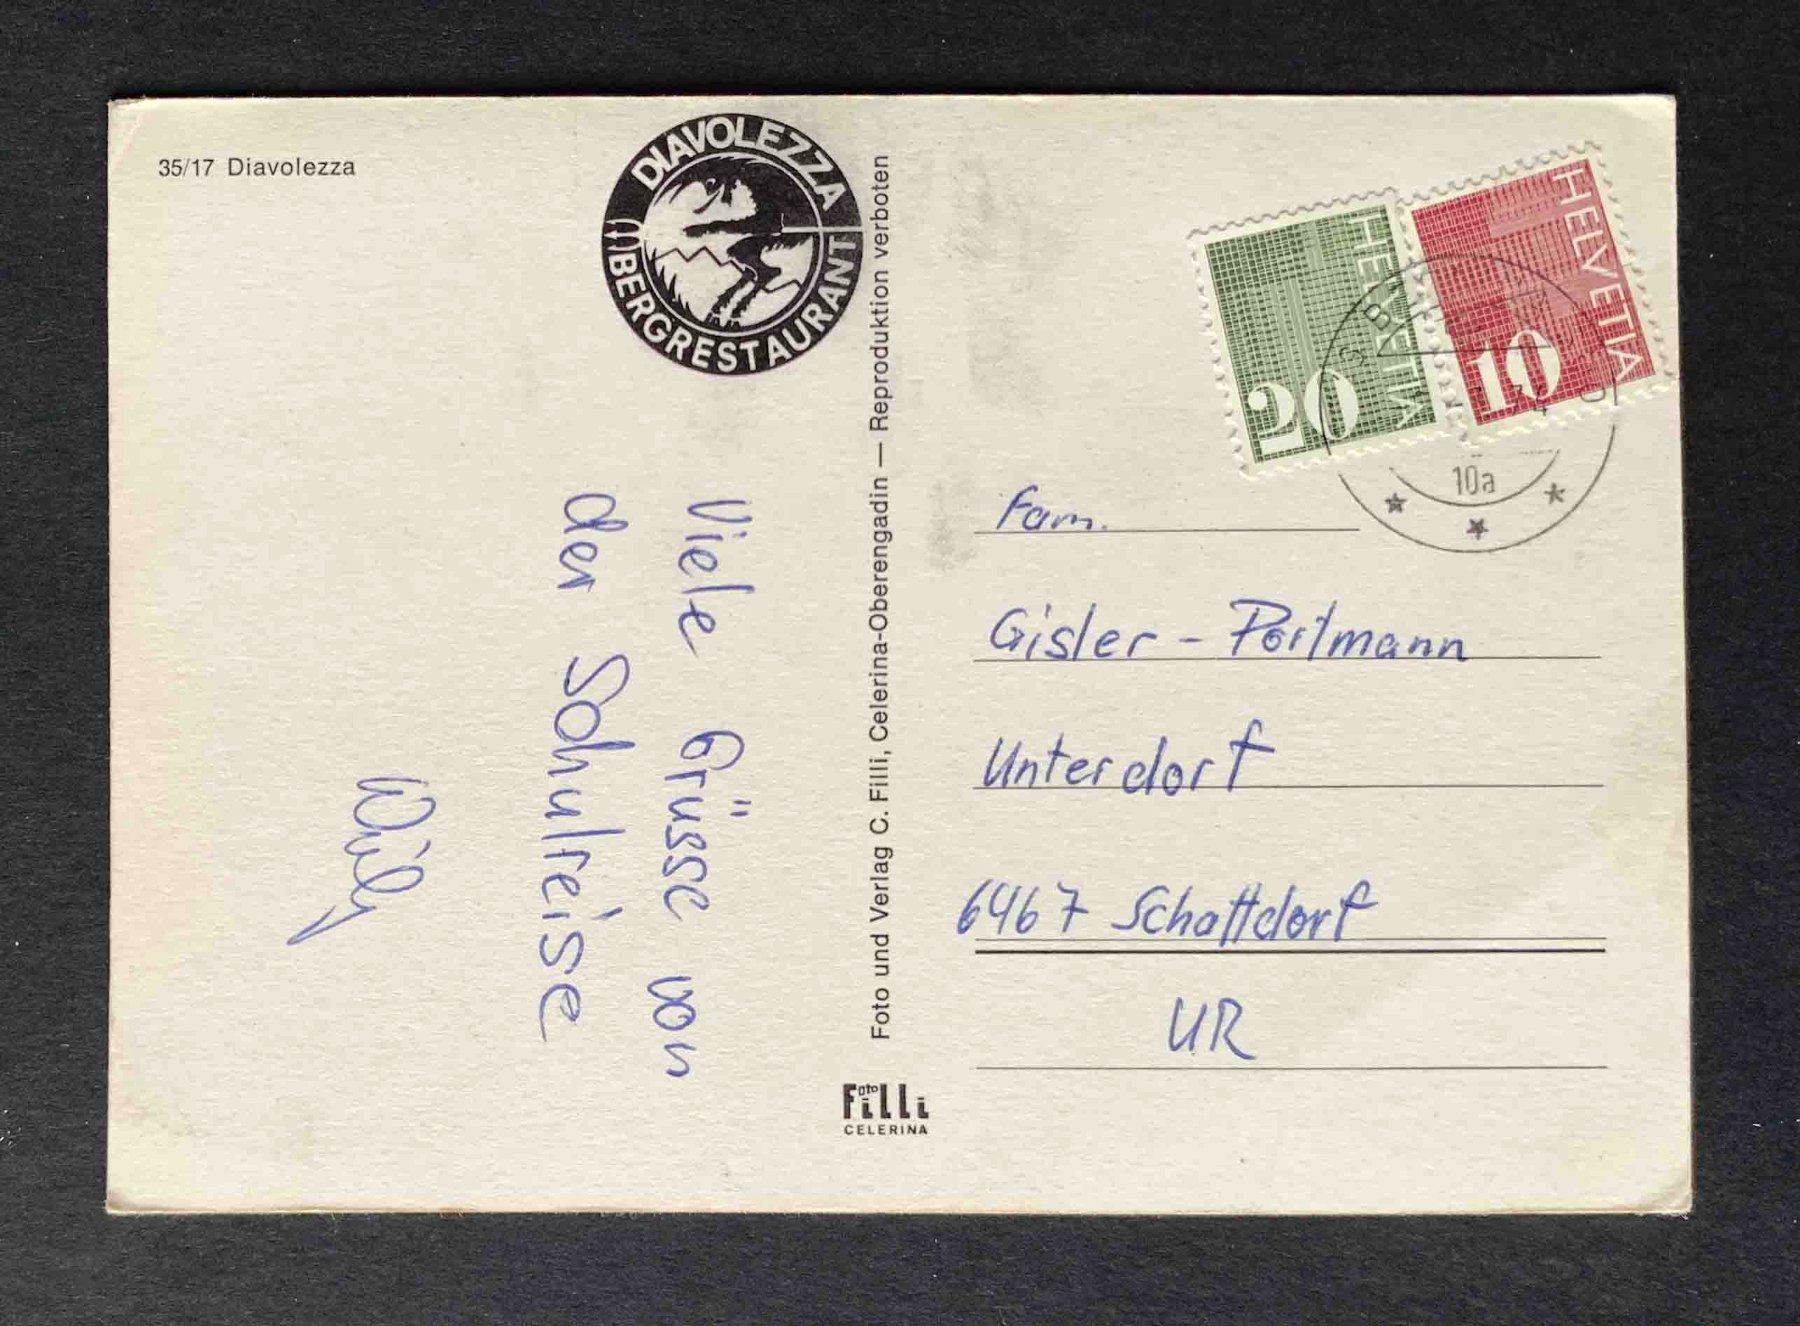 35/17 Diavolezza
DIAVOLEZZA
BERGRESTAURANT
Viele Grüsse von
der Schulreise
Willy
Foto und Verlag C. Filli, Celerina-Oberengadin — Reproduktion verboten
Foto
Filli
CELERINA
HELVETIA
HELVETIA
20
HELVETIA
10
10a
Fam.
Gisler - Portmann
Unterdorf
6467 Schattdorf
UR